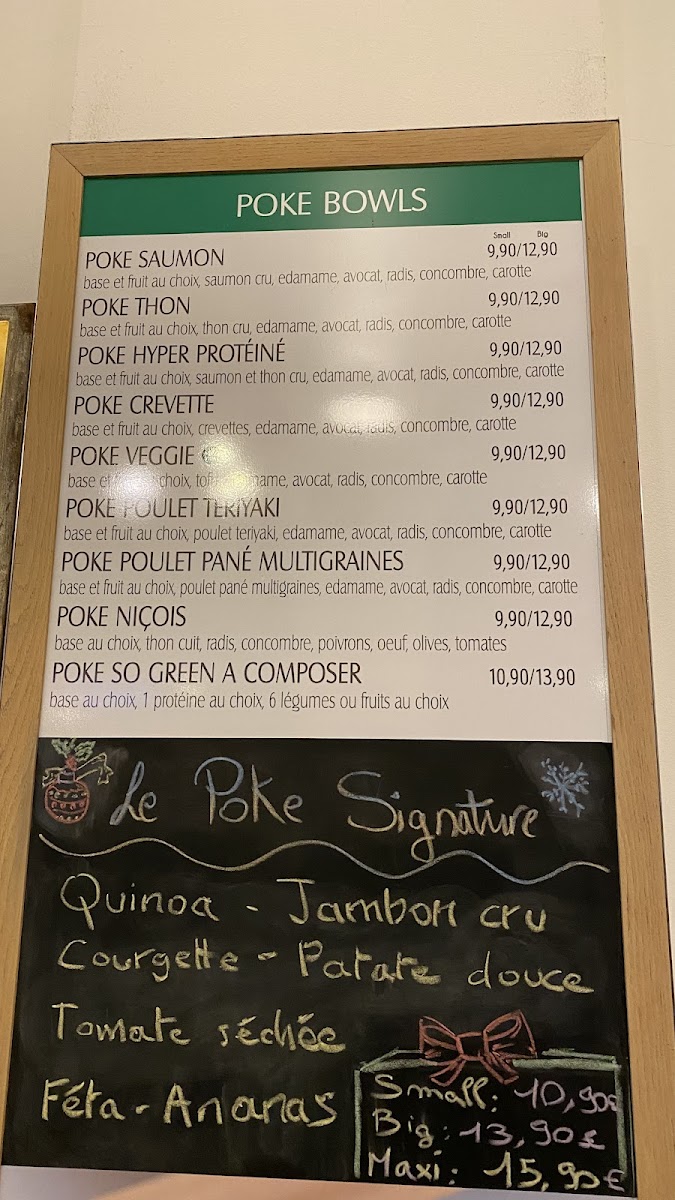 POKE BOWLS
Small Big
POKE SAUMON 9,90/12,90
base et fruit au choix, saumon cru, edamame, avocat, radis, concombre, carotte
POKE THON 9,90/12,90
base et fruit au choix, thon cru, edamame, avocat, radis, concombre, carotte
POKE HYPER PROTÉINÉ 9,90/12,90
base et fruit au choix, saumon et thon cru, edamame, avocat, radis, concombre, carotte
POKE CREVETTE 9,90/12,90
base et fruit au choix, crevettes, edamame, avocat, radis, concombre, carotte
POKE VEGGIE 9,90/12,90
base et choix, avocat, radis, concombre, carotte
POKE POULET TERIYAKI 9,90/12,90
base et fruit au choix, poulet teriyaki, edamame, avocat, radis, concombre, carotte
POKE POULET PANÉ MULTIGRAINES 9,90/12,90
base et fruit au choix, poulet pané multigraines, edamame, avocat, radis, concombre, carotte
POKE NIÇOIS 9,90/12,90
base au choix, thon cuit, radis, concombre, poivrons, oeuf, olives, tomates
POKE SO GREEN A COMPOSER 10,90/13,90
base au choix, 1 protéine au choix, 6 légumes ou fruits au choix
Le Poke Signature
Quinoa - Jambon cru
Courgette - Patate douce
Tomate séchée
Féta - Ananas
Small: 10,90€
Big: 13,90€
Maxi: 15,90€